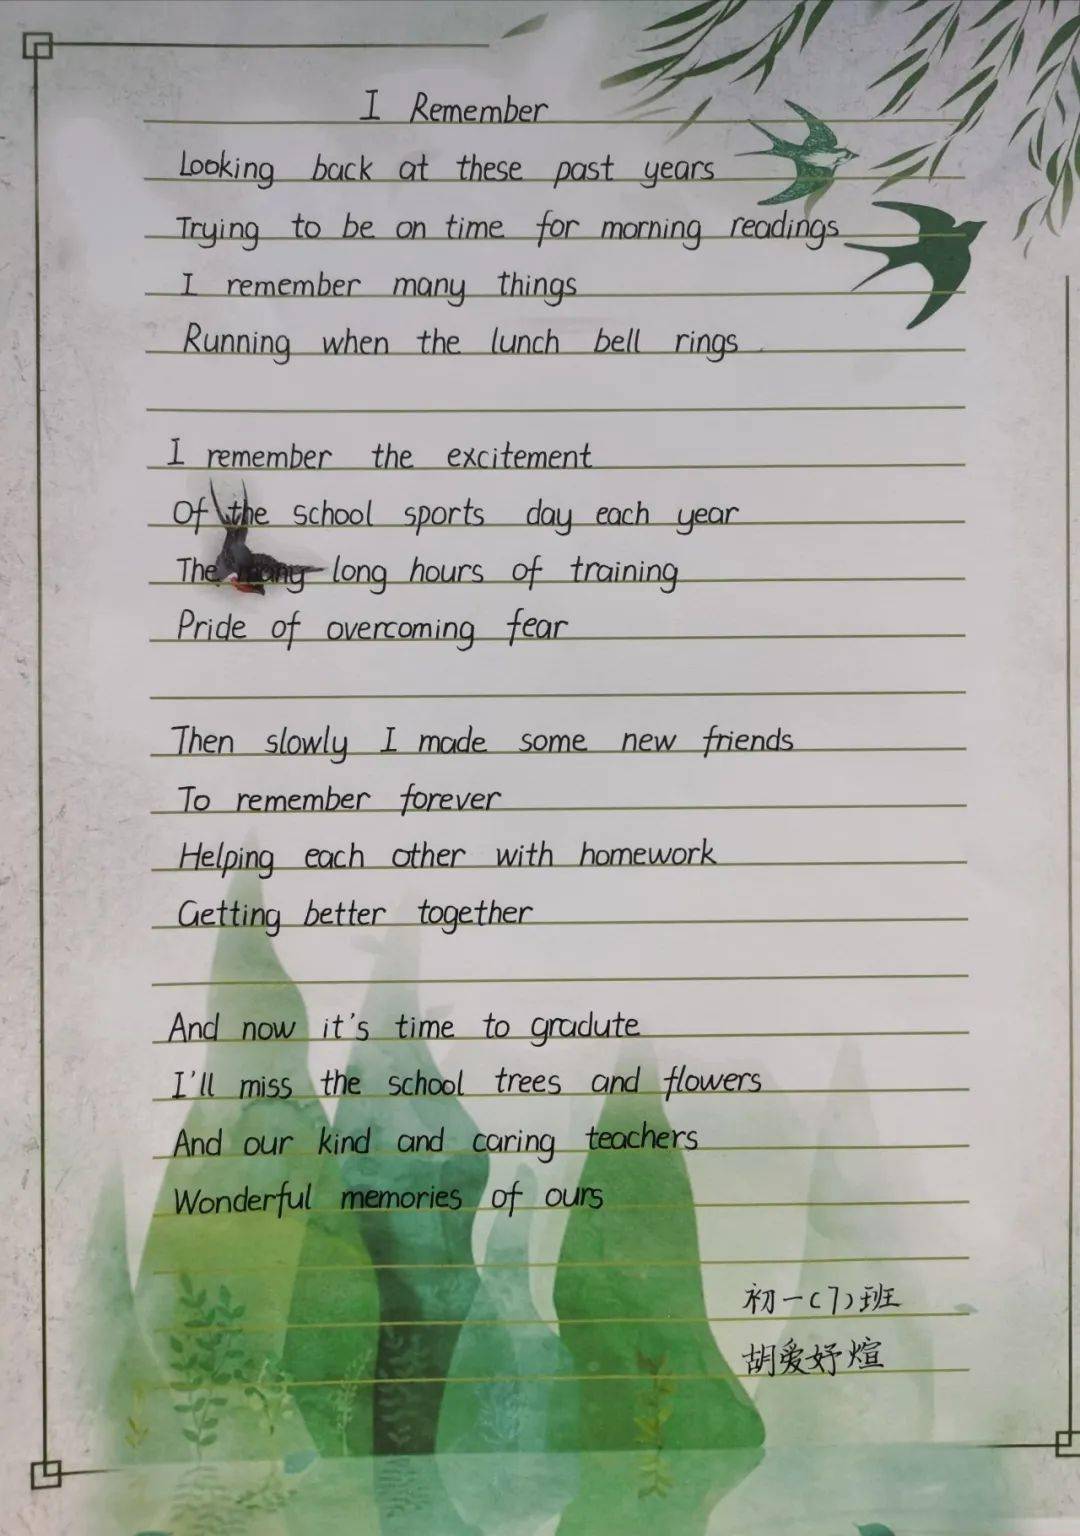 I Remember
Looking back at these past years
Trying to be on time for morning readings
I remember many things
Running when the lunch bell rings
I remember the excitement
Of the school sports day each year
The many long hours of training
Pride of overcoming fear
Then slowly I made some new friends
To remember forever
Helping each other with homework
Getting better together
And now it's time to gradute
I'll miss the school trees and flowers
And our kind and caring teachers
Wonderful memories of ours
初一(7)班
胡爱妤煊